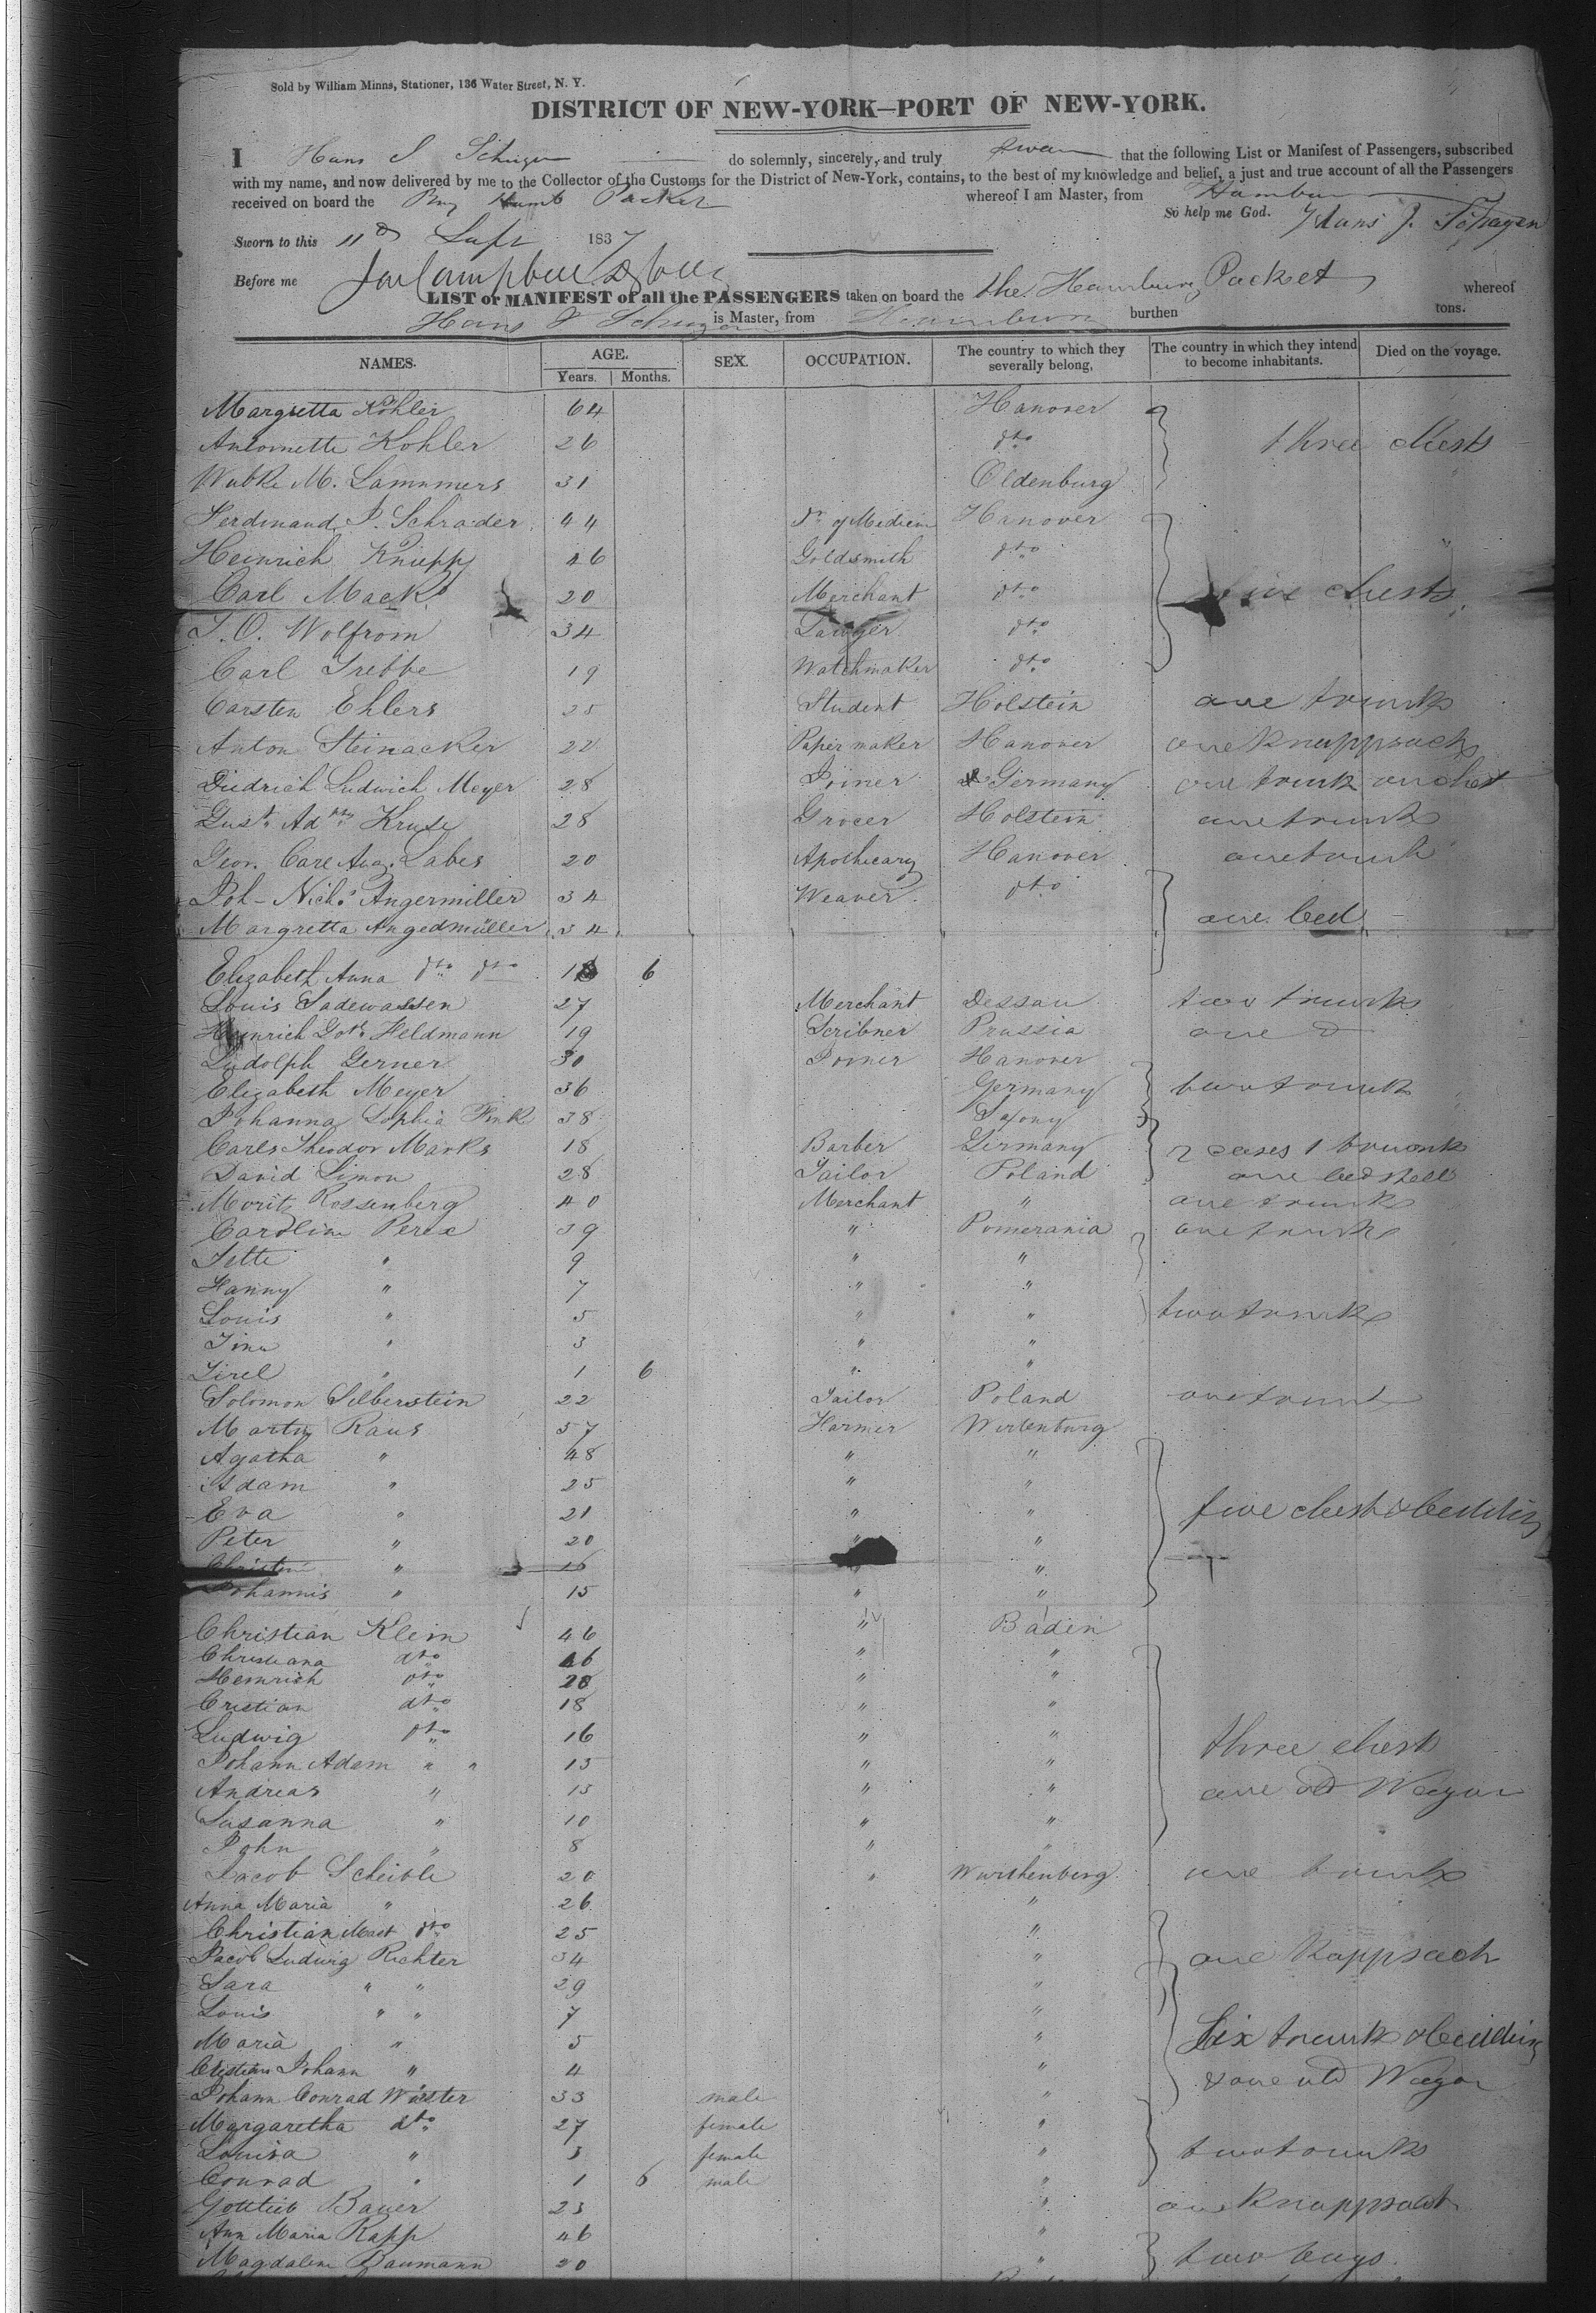 Sold by William Minns, Stationer, 136 Water Street, N. Y.
DISTRICT OF NEW-YORK—PORT OF NEW-YORK.
I Hans J do solemnly, sincerely, and truly swear that the following List or Manifest of Passengers, subscribed
with my name, and now delivered by me to the Collector of the Customs for the District of New-York, contains, to the best of my knowledge and belief, a just and true account of all the Passengers
received on board the Hamb Packet whereof I am Master, from Hambur
So help me God. Hans J.
Sworn to this 11 1837
Before me
LIST or MANIFEST of all the PASSENGERS taken on board the the Hamburg Packet whereof
Hans J is Master, from Hamburg burthen tons.
NAMES. AGE. SEX. OCCUPATION. The country to which they severally belong, The country in which they intend to become inhabitants. Died on the voyage.
Years. Months.
Margretta Köhler 64 Hanover
Antoinette Kohler 26 dto three chests
Wubke M. Lammmers 31 Oldenburg
Ferdinand P. Schrader 44 Dr of Medicin Hanover
Heinrich Knupp 46 Goldsmith dto
Carl Mack 20 Merchant dto five chests
J. O. Wolfrom 34 Lawyer dto
Carl Trebbe 19 Watchmaker dto
Carsten Ehlers 25 Student Holstein one trunk
Anton Steinacker 22 Paper maker Hanover one knappsack
Diedrich Ludwich Meyer 28 Joiner Germany one trunk on chest
Gust. Ad Kruse 28 Grocer Holstein one trunk
Geor. Carl Aug. Labes 20 Apothecary Hanover one trunk
Joh- Nichs Angermiller 34 Weaver dto
Margretta Angedmüller 34 one bed
Elizabeth Anna dto dto 18 6
Louis Sadewassen 27 Merchant Dessau two trunks
Heinrich Gott Heldmann 19 Scribner Prussia one d
Ludolph Gerner 30 Joiner Hanover
Elizabeth Meyer 36 Germany two trunk
Johanna Sophia Fink 38 Saxony
Carls Theodor Marks 18 Barber Germany 2 cases 1 trunk
David Simon 28 Tailor Poland one bed
Moritz Rossenberg 40 Merchant " one trunk
Carolina Perex 39 " Pomerania one trunk
Jette " 9 " "
Hanny " 7 " "
Louis " 5 " " two trunks
Tina " 3 " "
Tirel " 1 6 " "
Solomon Silberstein 22 Tailor Poland one trunk
Martin Raus 57 Farmer Wirtenburg
Agatha " 48 " "
Adam " 25 " "
Eva " 21 " " five chest & bedding
Peter " 20 " "
Christin " 16 "
Johannis " 15 " "
Christian Klein 46 " Baden
Christiana dto 46 " "
Heinrich dto 20 " "
Cristian dto 18 " "
Ludwig dto 16 " " three chest
Johann Adam " " 15 " "
Andreas " 15 " " one old Wagon
Susanna " 10 " "
John " 8 " "
Jacob Scheible 20 " Wurthenberg one trunk
Anna Maria " 26 "
Christian Mast dto 25 "
Jacob Ludwig Richter 34 " one Kappsack
Sara " " 29 "
Louis " " 7 "
Maria " 5 " Six trunk & bedding
Christian Johann " 4 " & one old Wagon
Johann Conrad Wüster 33 male "
Margaretha dto 27 female "
Louisa " 3 female " two trunks
Conrad " 1 6 male "
Gottlieb Bauer 23 " one knappsack
Ann Maria Rapp 46 "
Magdalena Baumann 20 " two bags.